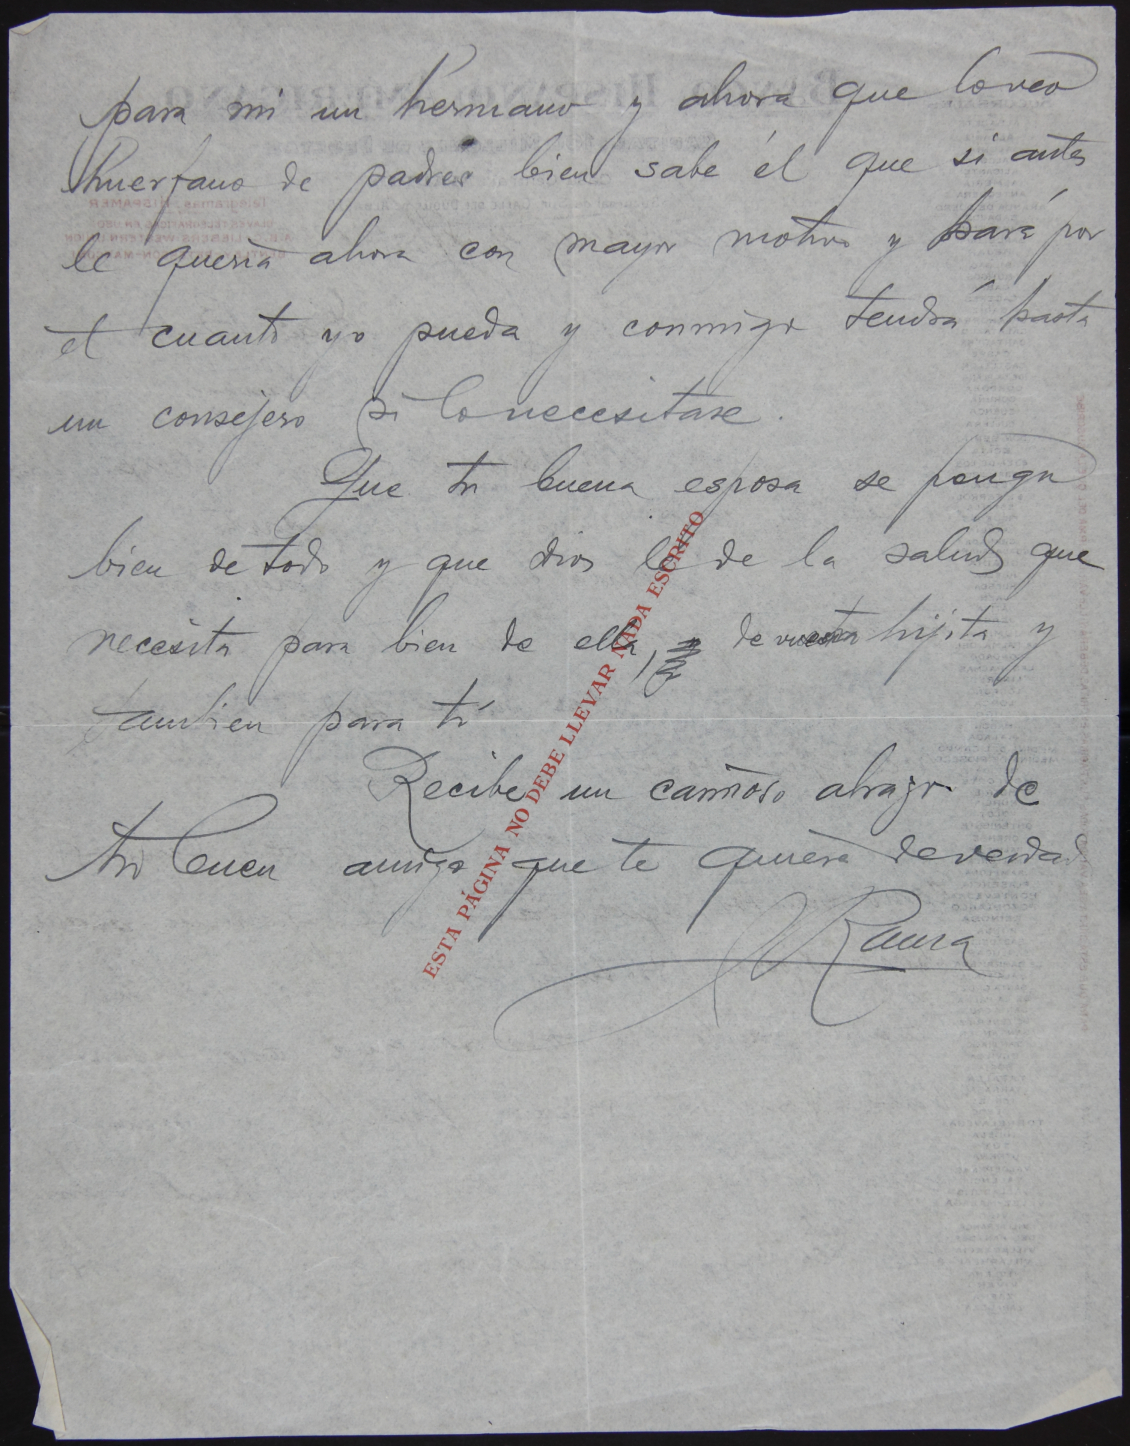 para mi un hermano y ahora que lo veo
huerfano de padres bien sabe él que si antes
le quería ahora con mayor motivo y hará por
el cuanto yo pueda y conmigo tendrá hasta
un consejero si lo necesitase.
Que tu buena esposa se ponga
bien de todo y que dios le de la salud que
necesita para bien de ella, de vuestra hijita y
tambien para tí
Recibe un cariñoso abrazo de
tu buen amigo que te quiere de verdad
Raura
ESTA PÁGINA NO DEBE LLEVAR NADA ESCRITO